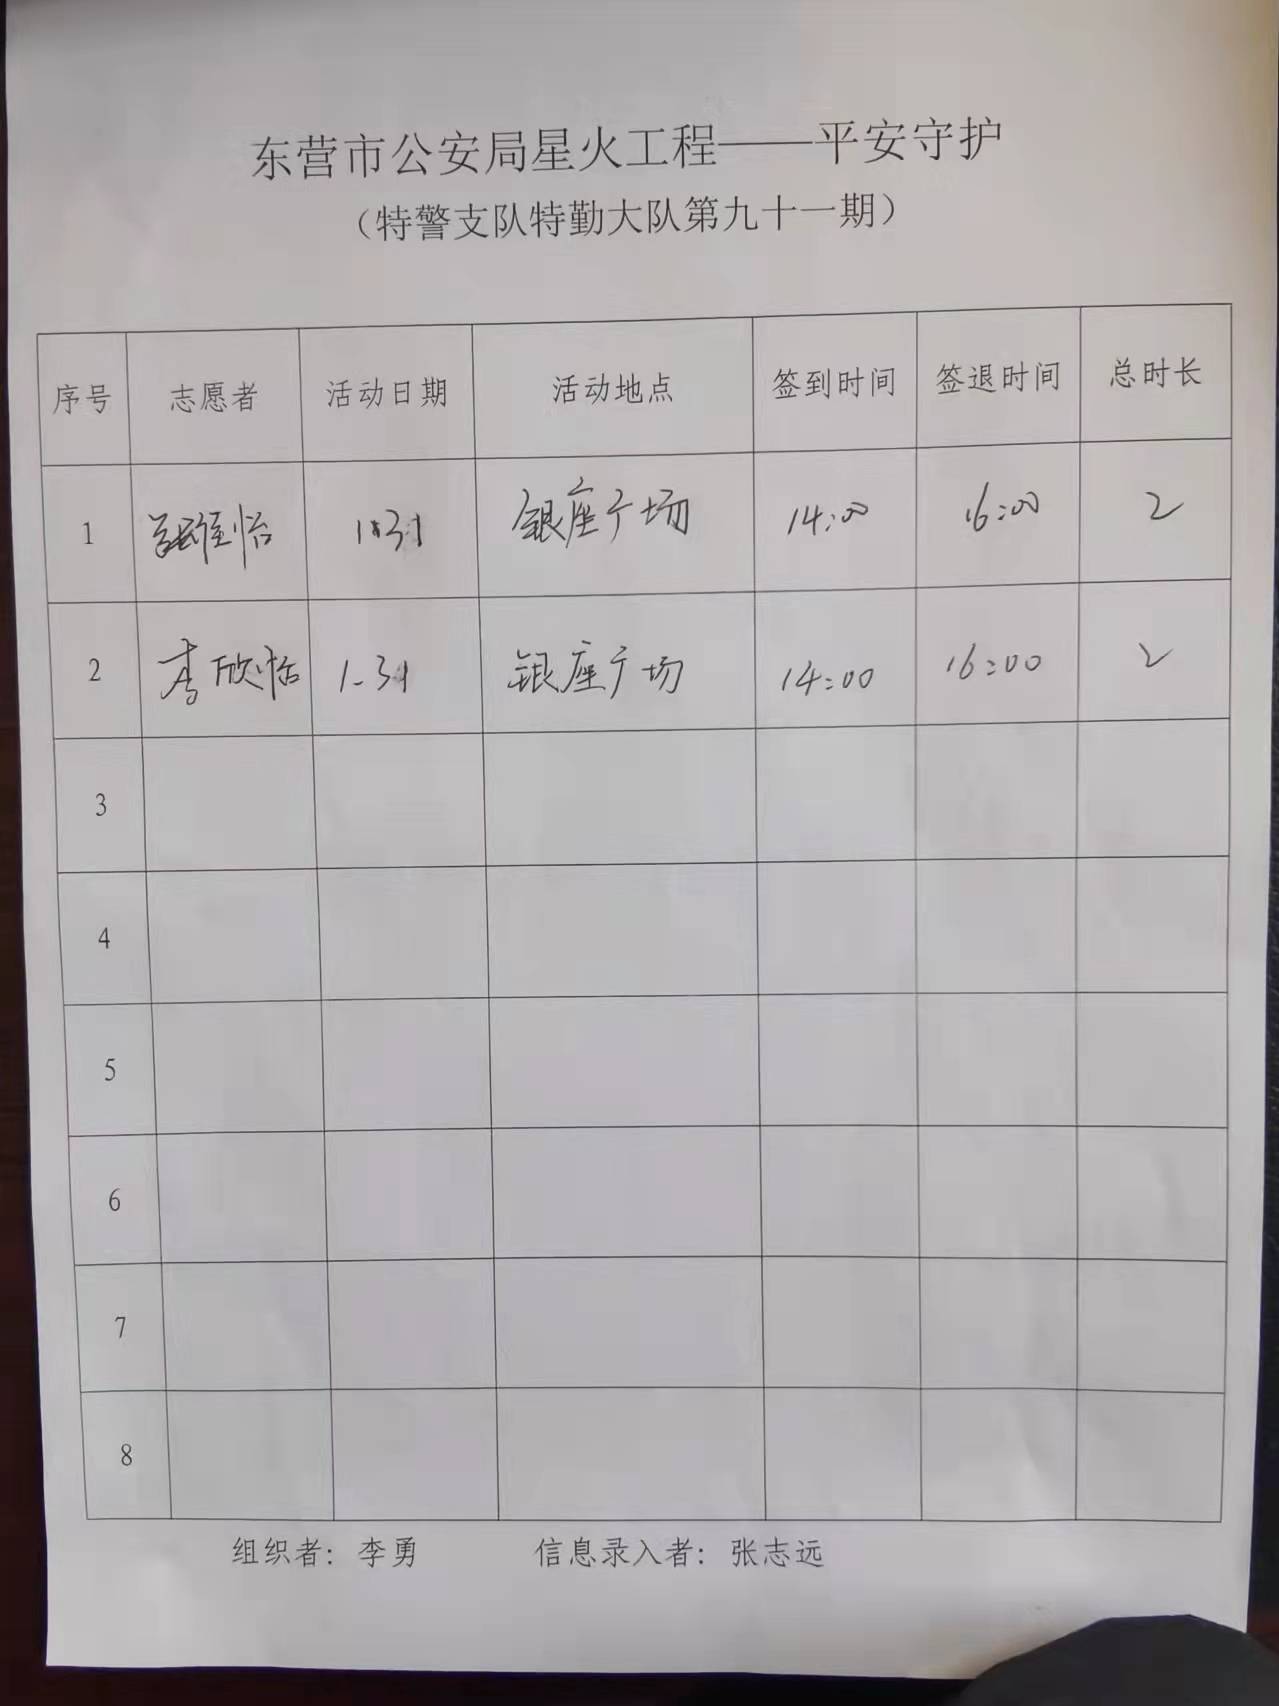 东营市公安局星火工程——平安守护
（特警支队特勤大队第九十一期）
序号 志愿者 活动日期 活动地点 签到时间 签退时间 总时长
1 银座广场 14:00 16:00 2
2 李欣怡 1.31 银座广场 14:00 16:00 2
3
4
5
6
7
8
组织者：李勇 信息录入者：张志远